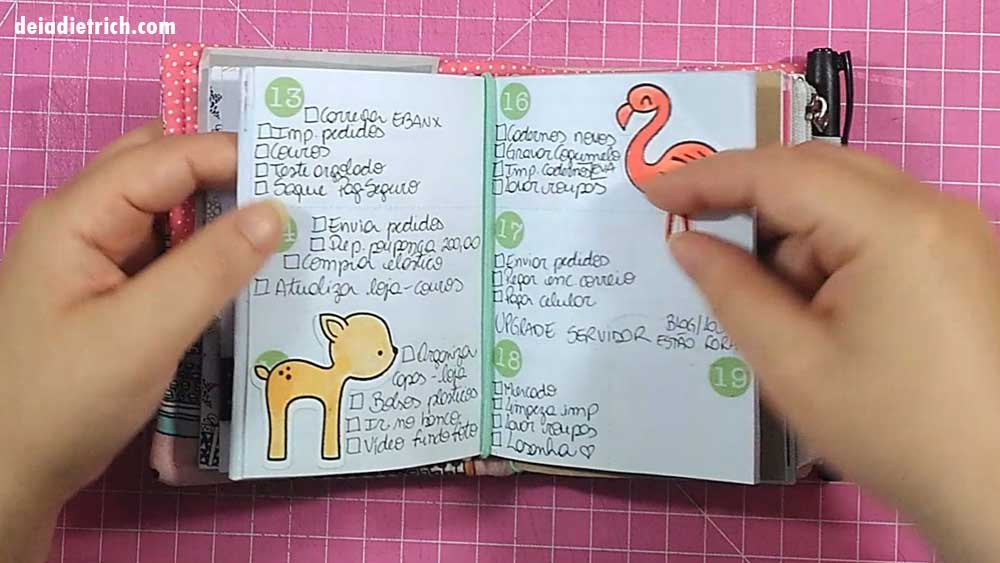 deiadietrich.com
13
Corrigir EBANX
Imp. pedidos
Couros
Teste argolado
Saque Pag-Seguro
4
Enviar pedidos
Dep. poupança 200,00
Comprar elástico
Atualizar loja-couros
Organizar
capas-loja
Bolsos plásticos
Ir no banco
Vídeo fundo foto
16
Cadernos novos
Gravar Cogumelo
Imp. cadernos
Lavar roupas
17
Enviar pedidos
Pegar enc correio
Pagar celular
UPGRADE SERVIDOR BLOG/LO
ESTÃO FORA
18
Mercado
Limpeza imp
Lavar roupas
Lasanha ♡
19